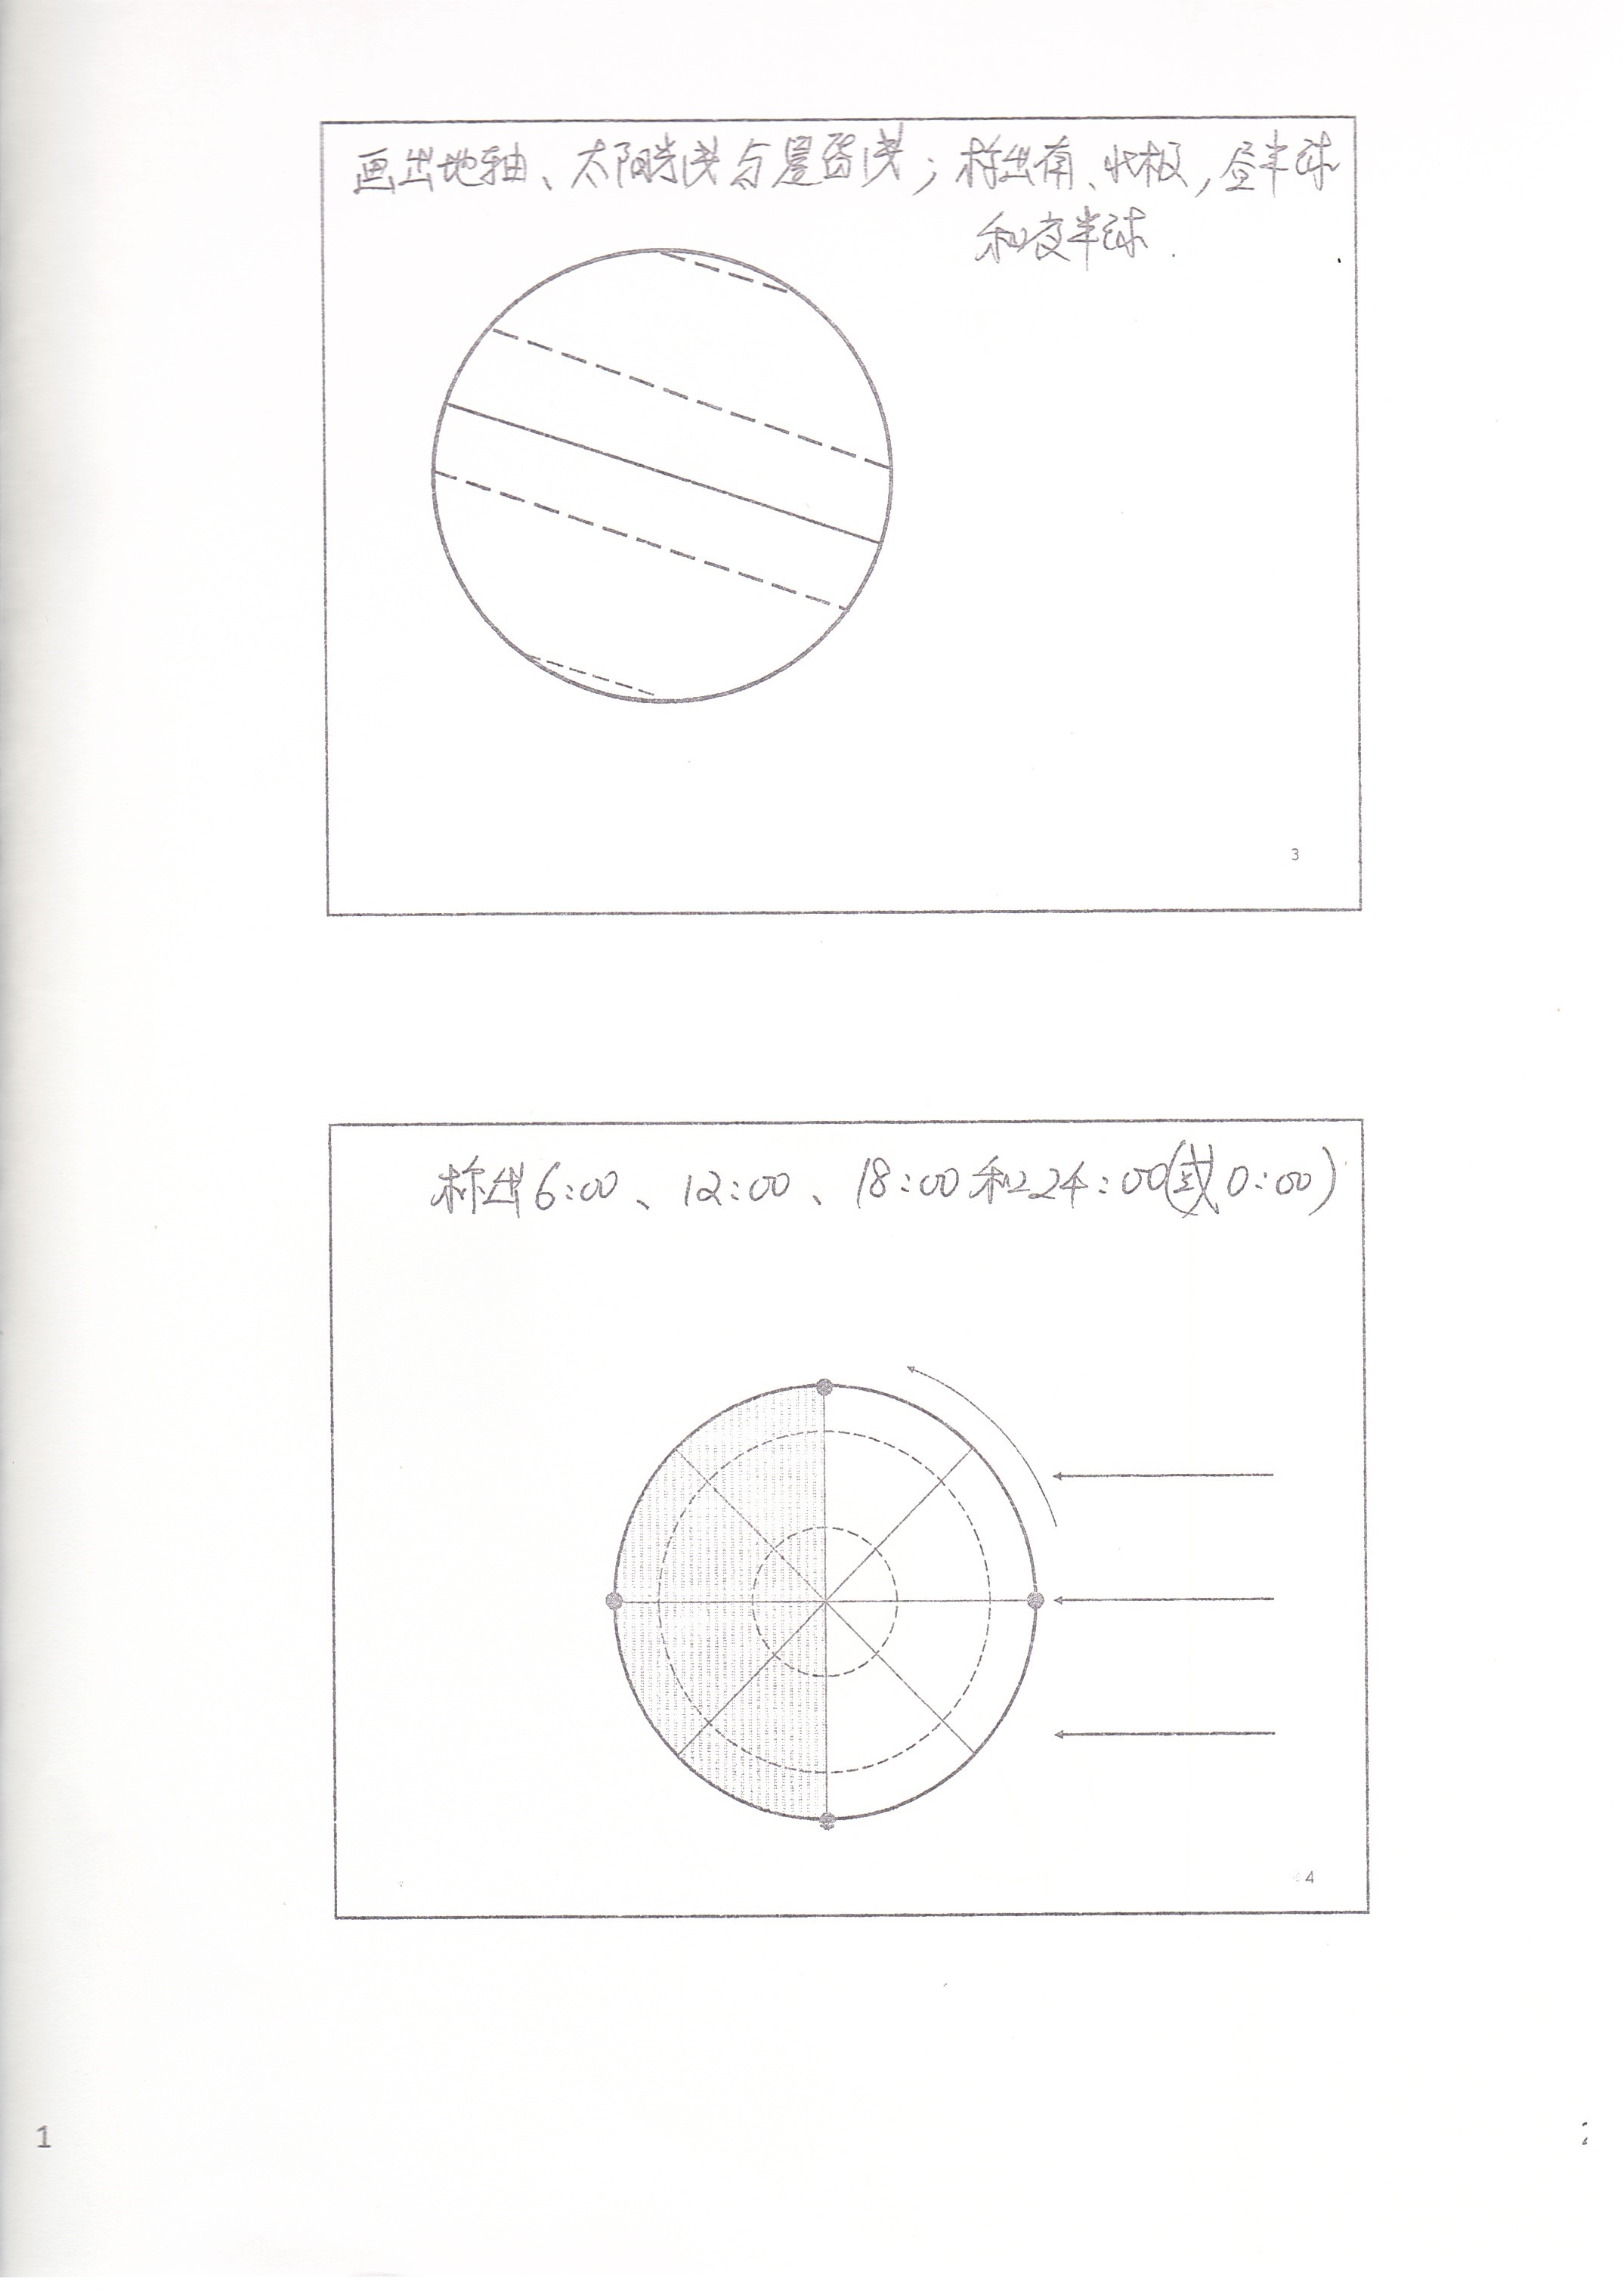 画出地轴、太阳光线与晨昏线；标出南、北极，昼半球
和夜半球.
3
标出6:00、12:00、18:00和24:00(或0:00)
4
1